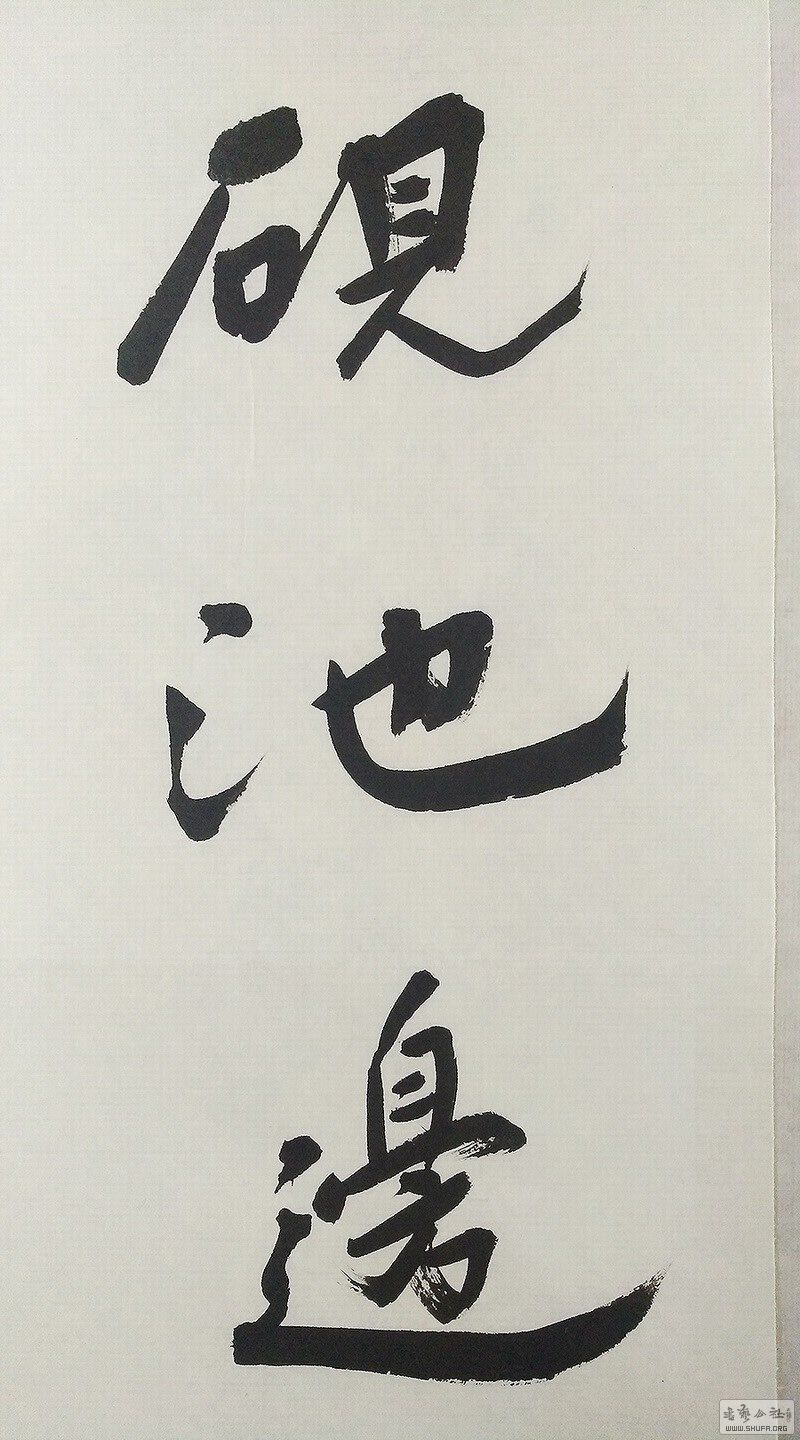 硯池邊
書藝公社
WWW.SHUFA.ORG